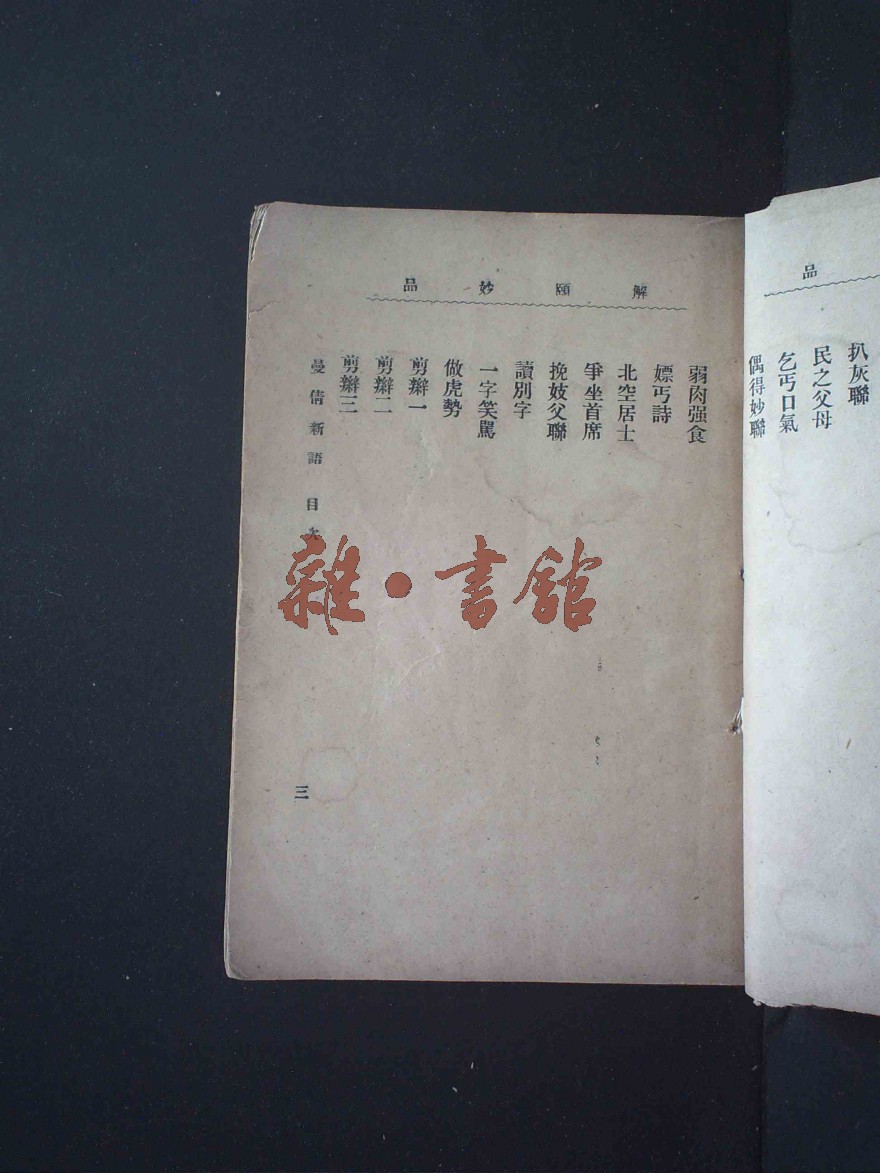 品
扒灰聯
民之父母
乞丐口氣
偶得妙聯
解頤妙品
弱肉强食
嫖丐詩
北空居士
爭坐首席
挽妓父聯
讀別字
一字笑罵
做虎勢
剪辮一
剪辮二
剪辮三
曼倩新語 目次
三
雜·書館